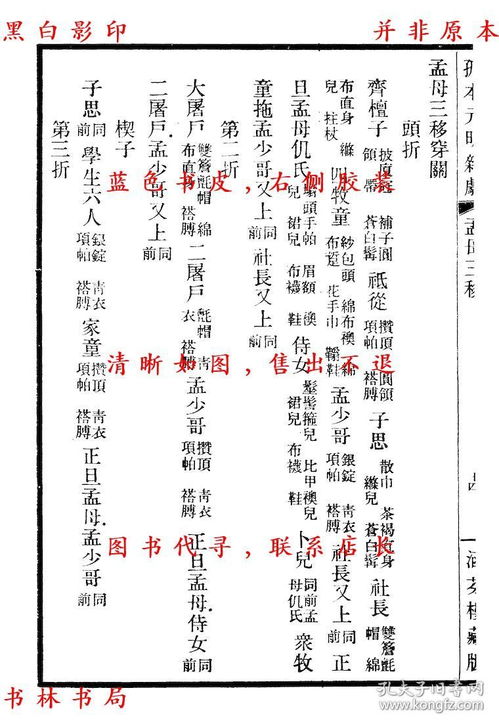 黑白影印
并非原本
孟母三移
孟母三移穿關
頭折
齊檀子 補子圓領 蒼白髯 祗從 攢頂項帕 圓領褡膊 子思 散巾 茶褐直身 縧兒 蒼白髯 社長 雙簷氈帽 綿
布直身 縧兒 拄杖 四牧童 紗包頭 綿布襖 花手巾 孟少哥 銀錠項帕 青衣褡膊 社長又上同前 正
旦孟母仉氏 手帕 眉額 襖兒 裙兒 布襪 鞋 侍女 鬏髻箍兒 比甲襖兒 裙兒 布襪 鞋 卜兒 同前孟母仉氏 衆牧
童拖孟少哥又上同前 社長又上同前
第二折
大屠戶 雙簷氈帽 綿布直身 褡膊 二屠戶 氈帽 青衣 褡膊 孟少哥 攢頂項帕 青衣褡膊 正旦孟母侍女同前
二屠戶孟少哥又上同前
楔子
子思同前 學生六人 銀錠項帕 青衣褡膊 家童 攢頂項帕 青衣褡膊 正旦孟母孟少哥同前
第三折
蓝色书皮，右侧胶装
清晰如图，售出不退
图书代寻，联系店长
书林书局
孔夫子旧书网
kongfz.com